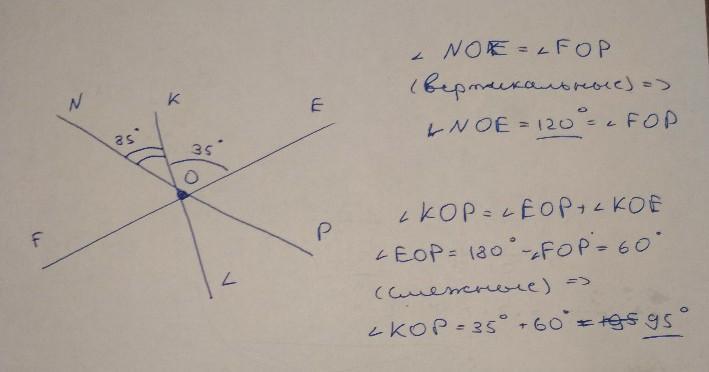 ∠ NOE = ∠FOP
(вертикальные) =>
∠NOE = 120° = ∠ FOP
N
K
E
85°
35°
O
F
P
L
∠KOP = ∠EOP + ∠KOE
∠EOP = 180° - ∠FOP = 60°
(смежные) =>
∠KOP = 35° + 60° = 95°